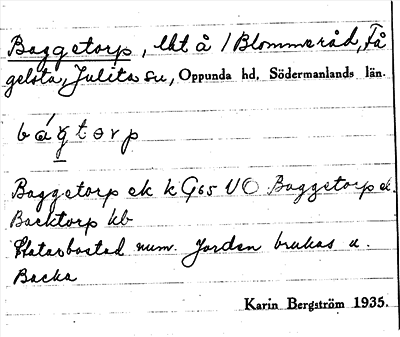 Baggetorp, lht å /Blommeråd, Få
gelsta, Julita sn, Oppunda hd, Södermanlands län.
bágtorp
Baggetorp ek k G65 VO Baggetorp ek.
Backtorp kb
Statarbostad num. Jorden brukas u.
Backa
Karin Bergström 1935.